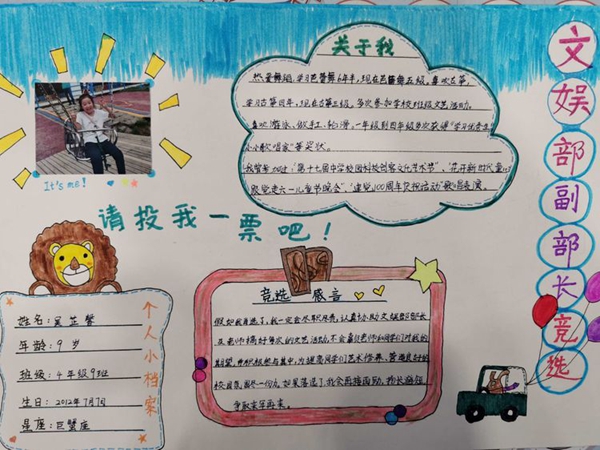 文娱部副部长竞选
关于我
热爱舞蹈,学习芭蕾舞6年半,现在芭蕾舞五级,喜欢古筝,
学习古筝四年,现在古筝三级,多次参加学校班级文艺活动。
喜欢游泳、做手工、轮滑,一年级到四年级多次获得"学习优秀生"
小小歌唱家"等奖状
我曾参加过"第十七届中学校园科技创客文化艺术节"、"花开新时代童心
向党走六一儿童节晚会"、"建党100周年庆祝活动"歌唱表演
It's me!
请投我一票吧!
个人小档案
姓名:
年龄:9岁
班级:4年级9班
生日:2012年7月7日
星座:巨蟹座
竞选感言
假如我当选了,我一定会尽职尽责,认真
及老师搞好每次的文艺活动,不会辜负老师和同学们对我的
期望,并积极参与其中,为提高同学们艺术修养、营造良好的
校园氛围尽一份力,如果落选了,我会再接再励,
争取来年再来。